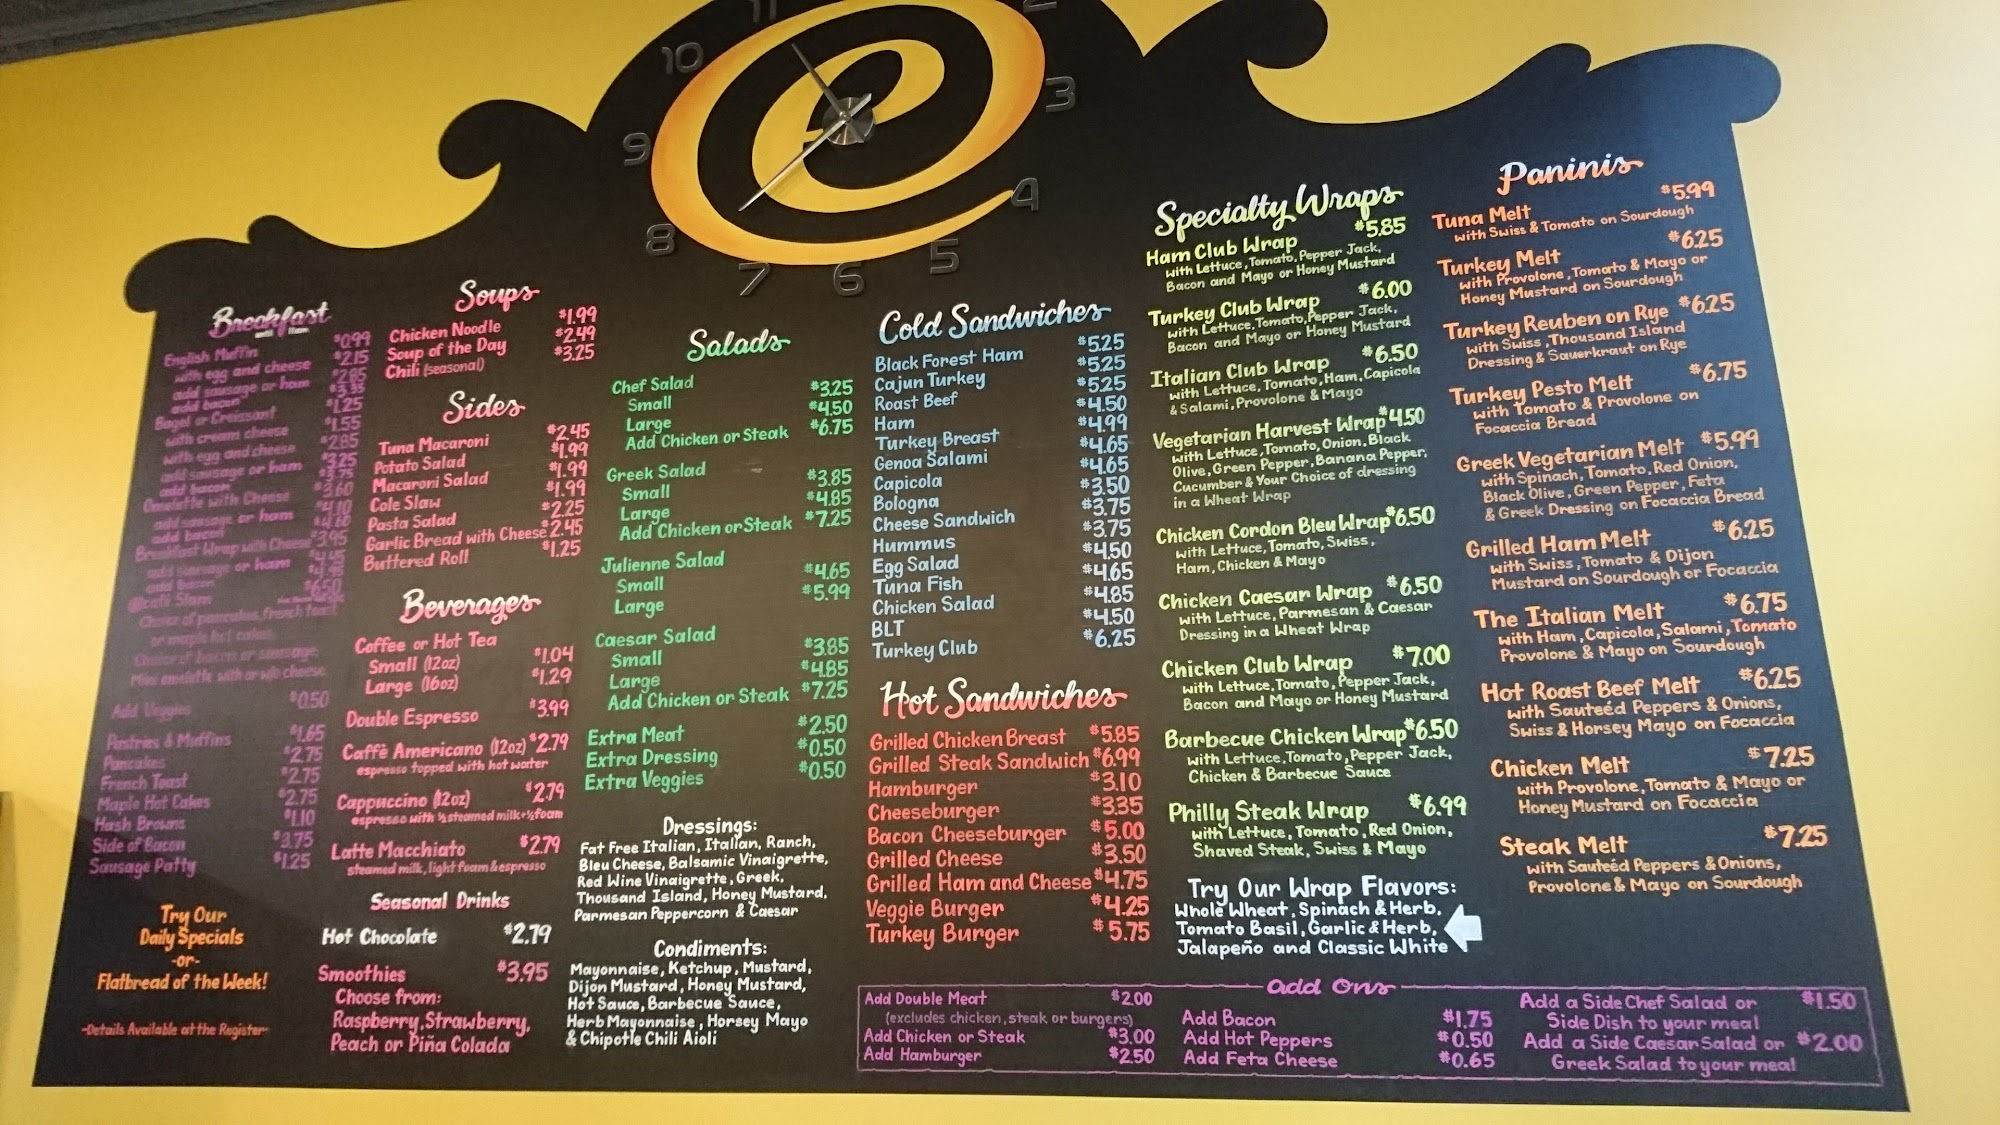 11
10
9
8
7
6
5
4
3
2
Breakfast
until 11am
English Muffin $0.99
with egg and cheese $2.15
add sausage or ham $2.85
add bacon $3.35
Bagel or Croissant $1.25
with cream cheese $1.55
with egg and cheese $2.85
add sausage or ham $3.25
add bacon $3.75
Omelette with Cheese $3.60
add sausage or ham $4.10
add bacon $4.60
Breakfast Wrap with Cheese $3.95
add sausage or ham $4.45
add bacon $4.95
Café Slam $6.50
Choice of pancakes, french toast
or maple hot cakes.
Choice of bacon or sausage.
Mini omelette with or w/o cheese.
Add Veggies $0.50
Pastries & Muffins $1.65
Pancakes $2.75
French Toast $2.75
Maple Hot Cakes $2.75
Hash Browns $1.10
Side of Bacon $3.75
Sausage Patty $1.25
Try Our
Daily Specials
-or-
Flatbread of the Week!
-Details Available at the Register-
Soups
Chicken Noodle $1.99
Soup of the Day $2.49
Chili (seasonal) $3.25
Sides
Tuna Macaroni $2.45
Potato Salad $1.99
Macaroni Salad $1.99
Cole Slaw $1.99
Pasta Salad $2.25
Garlic Bread with Cheese $2.45
Buttered Roll $1.25
Beverages
Coffee or Hot Tea
Small (12oz) $1.04
Large (16oz) $1.29
Double Espresso $3.99
Caffè Americano (12oz) $2.79
espresso topped with hot water
Cappuccino (12oz) $2.79
espresso with ½ steamed milk+½foam
Latte Macchiato $2.79
steamed milk, light foam & espresso
Seasonal Drinks
Hot Chocolate $2.79
Smoothies $3.95
Choose from:
Raspberry, Strawberry,
Peach or Piña Colada
Salads
Chef Salad
Small $3.25
Large $4.50
Add Chicken or Steak $6.75
Greek Salad
Small $3.85
Large $4.85
Add Chicken or Steak $7.25
Julienne Salad
Small $4.65
Large $5.99
Caesar Salad
Small $3.85
Large $4.85
Add Chicken or Steak $7.25
Extra Meat $2.50
Extra Dressing $0.50
Extra Veggies $0.50
Dressings:
Fat Free Italian, Italian, Ranch,
Bleu Cheese, Balsamic Vinaigrette,
Red Wine Vinaigrette, Greek,
Thousand Island, Honey Mustard,
Parmesan Peppercorn & Caesar
Condiments:
Mayonnaise, Ketchup, Mustard,
Dijon Mustard, Honey Mustard,
Hot Sauce, Barbecue Sauce,
Herb Mayonnaise, Horsey Mayo
& Chipotle Chili Aioli
Cold Sandwiches
Black Forest Ham $5.25
Cajun Turkey $5.25
Roast Beef $5.25
Ham $4.50
Turkey Breast $4.99
Genoa Salami $4.65
Capicola $4.65
Bologna $3.50
Cheese Sandwich $3.75
Hummus $3.75
Egg Salad $4.50
Tuna Fish $4.65
Chicken Salad $4.85
BLT $4.50
Turkey Club $6.25
Hot Sandwiches
Grilled Chicken Breast $5.85
Grilled Steak Sandwich $6.99
Hamburger $3.10
Cheeseburger $3.35
Bacon Cheeseburger $5.00
Grilled Cheese $3.50
Grilled Ham and Cheese $4.75
Veggie Burger $4.25
Turkey Burger $5.75
Specialty Wraps
Ham Club Wrap $5.85
with Lettuce, Tomato, Pepper Jack,
Bacon and Mayo or Honey Mustard
Turkey Club Wrap $6.00
with Lettuce, Tomato, Pepper Jack,
Bacon and Mayo or Honey Mustard
Italian Club Wrap $6.50
with Lettuce, Tomato, Ham, Capicola
& Salami, Provolone & Mayo
Vegetarian Harvest Wrap $4.50
with Lettuce, Tomato, Onion, Black
Olive, Green Pepper, Banana Pepper,
Cucumber & Your Choice of dressing
in a Wheat Wrap
Chicken Cordon Bleu Wrap $6.50
with Lettuce, Tomato, Swiss,
Ham, Chicken & Mayo
Chicken Caesar Wrap $6.50
with Lettuce, Parmesan & Caesar
Dressing in a Wheat Wrap
Chicken Club Wrap $7.00
with Lettuce, Tomato, Pepper Jack,
Bacon and Mayo or Honey Mustard
Barbecue Chicken Wrap $6.50
with Lettuce, Tomato, Pepper Jack,
Chicken & Barbecue Sauce
Philly Steak Wrap $6.99
with Lettuce, Tomato, Red Onion,
Shaved Steak, Swiss & Mayo
Try Our Wrap Flavors:
Whole Wheat, Spinach & Herb,
Tomato Basil, Garlic & Herb,
Jalapeño and Classic White
Paninis
Tuna Melt $5.99
with Swiss & Tomato on Sourdough
Turkey Melt $6.25
with Provolone, Tomato & Mayo or
Honey Mustard on Sourdough
Turkey Reuben on Rye $6.25
with Swiss, Thousand Island
Dressing & Sauerkraut on Rye
Turkey Pesto Melt $6.75
with Tomato & Provolone on
Focaccia Bread
Greek Vegetarian Melt $5.99
with Spinach, Tomato, Red Onion,
Black Olive, Green Pepper, Feta
& Greek Dressing on Focaccia Bread
Grilled Ham Melt $6.25
with Swiss, Tomato & Dijon
Mustard on Sourdough or Focaccia
The Italian Melt $6.75
with Ham, Capicola, Salami, Tomato
Provolone & Mayo on Sourdough
Hot Roast Beef Melt $6.25
with Sauteéd Peppers & Onions,
Swiss & Horsey Mayo on Focaccia
Chicken Melt $7.25
with Provolone, Tomato & Mayo or
Honey Mustard on Focaccia
Steak Melt $7.25
with Sauteéd Peppers & Onions,
Provolone & Mayo on Sourdough
Add Ons
Add Double Meat $2.00
(excludes chicken, steak or burgers)
Add Chicken or Steak $3.00
Add Hamburger $2.50
Add Bacon $1.75
Add Hot Peppers $0.50
Add Feta Cheese $0.65
Add a Side Chef Salad or $1.50
Side Dish to your meal
Add a Side Caesar Salad or $2.00
Greek Salad to your meal